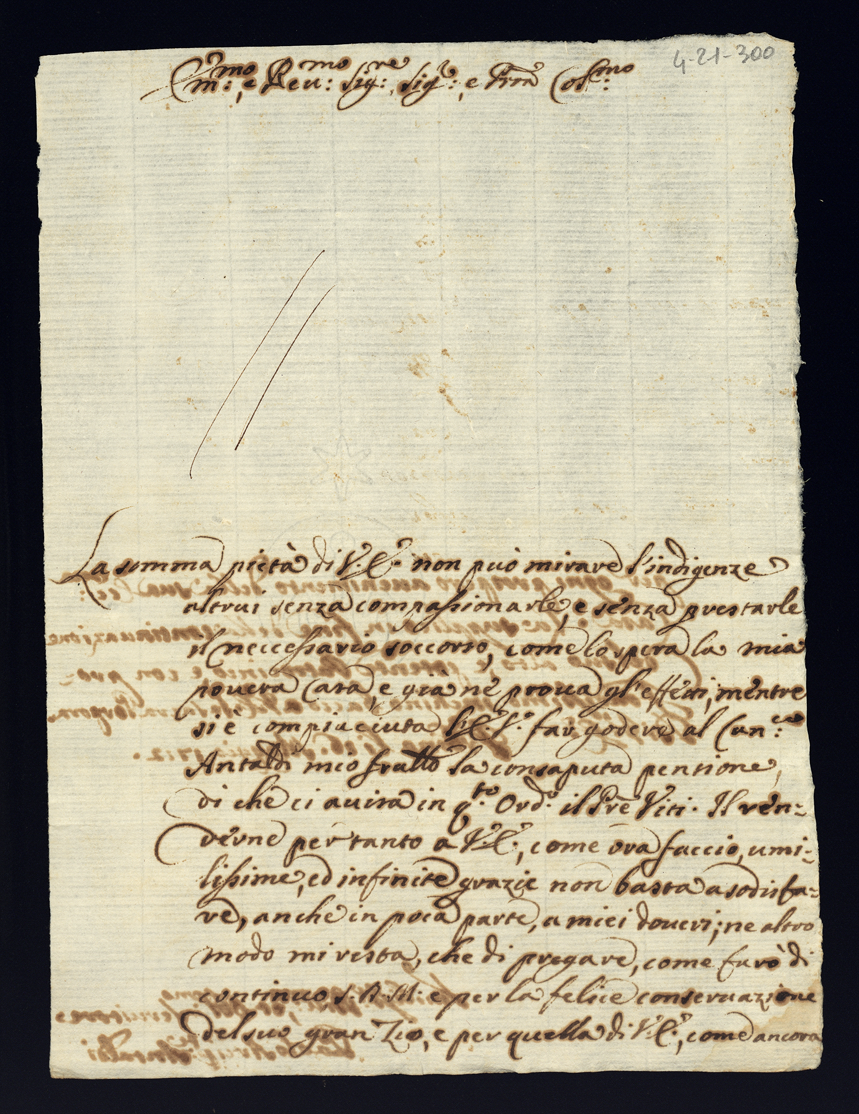 4-21-300
Ill.mo e Rev:mo Sig:re, Sig.r, e Pron Col:mo
La somma pietà di V.E. non può mirare l'indigenze
altrui senza compassionarle, e senza prestarle
il neccessario soccorso, come lo spera la mia
povera Casa, e già ne prova gl'effetti, mentre
si è compiaciuta V.E. far godere al Can:co
Antaldi mio fratello la consaputa pentione,
di che ci avisa in q.to Ord.o il Pre Viti. Il ren-
derne per tanto a V.E., come ora faccio, umi-
lissime, ed infinite grazie non basta a sodisfa-
re, anche in poca parte, a miei doveri; ne altro
modo mi resta, che di pregare, come farò di
continuo S.D.M. e per la felice conservazione
del suo gran Zio, e per quella di V.E., come ancora